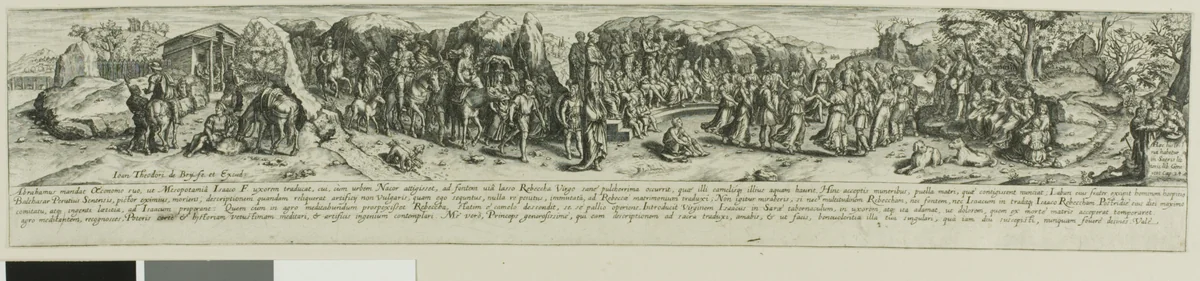 Ioan Theodori de Bry fe. et Excud:
Abrahamus mandat Œconomo suo, ut Mesopotamiâ Isaaco F. uxorem traducat, cui, cùm urbem Nacor attigisset, ad fontem viâ lasso Rebeccha Virgo sanè pulcherrima occurrit, quæ illi camelisq; illius aquam haurit. Hinc acceptis muneribus, puella matri, quæ contigissent nunciat, Laban eius frater excipit hominem hospitio
Balthasar Perutius Senensis, pictor eximius, moriens, descriptionem quandam reliquerat artificij non vulgaris, quam ego sequutus, nulla re penitus, immutatâ, ad Rebeccæ matrimonium traduxi. Non igitur miraberis, si nec multitudinem Rebeccham, nec fontem, nec Isaacum in
comitatu, atq; ingenti letitia, ad Isaacum properant: Quem cùm in agro meditabundum prospexisset Rebeccha, statim è camelo descendit, se se pallio operiens. Introducit Virginem Isaacus in Saræ tabernaculum, in uxorem, atq; ita adamat, ut dolorem, quem ex morte matris acceperat temperaret.
agro meditantem, recognoscas. Poteris historiam vetustissimam meditari, & artificis ingenium contemplari. Me verò, Princeps generosissime, qui eam descriptionem ad sacra traduxi, amabis, & ut facis, benevolentia illa tua singulari, quâ iam diu suscepisti, nunquam fovere desines. Vale.